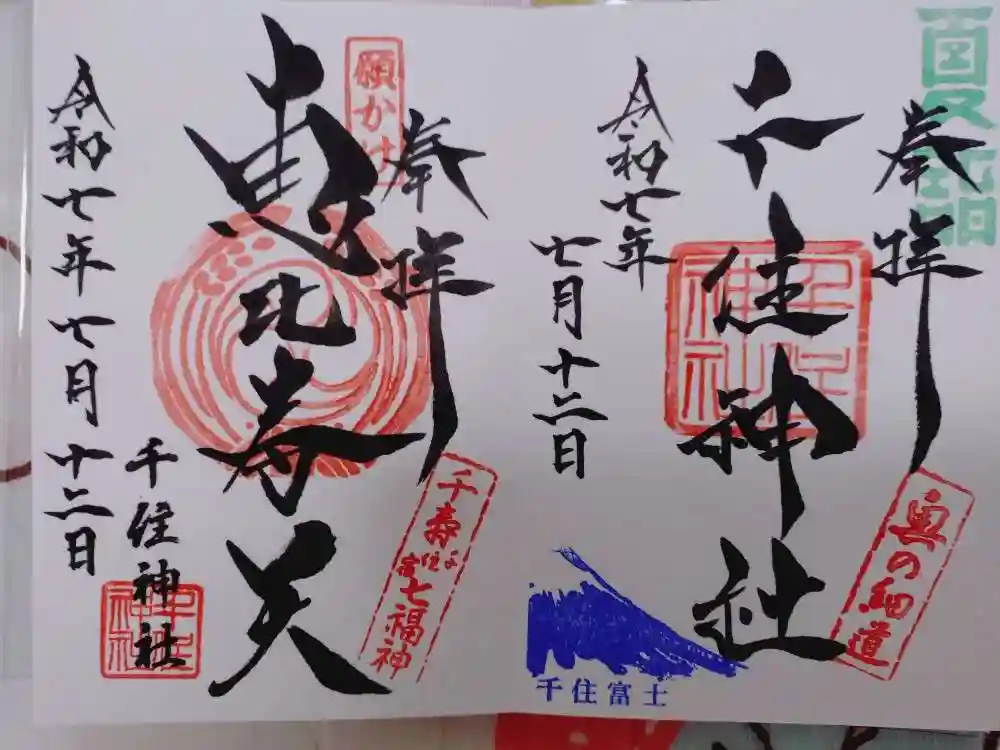 夏詣
奉拝
千住神社
千住神社
奥の細道
令和七年
七月十二日
千住富士
願かけ
奉拝
恵比寿天
千寿七福神
令和七年七月十二日
千住神社